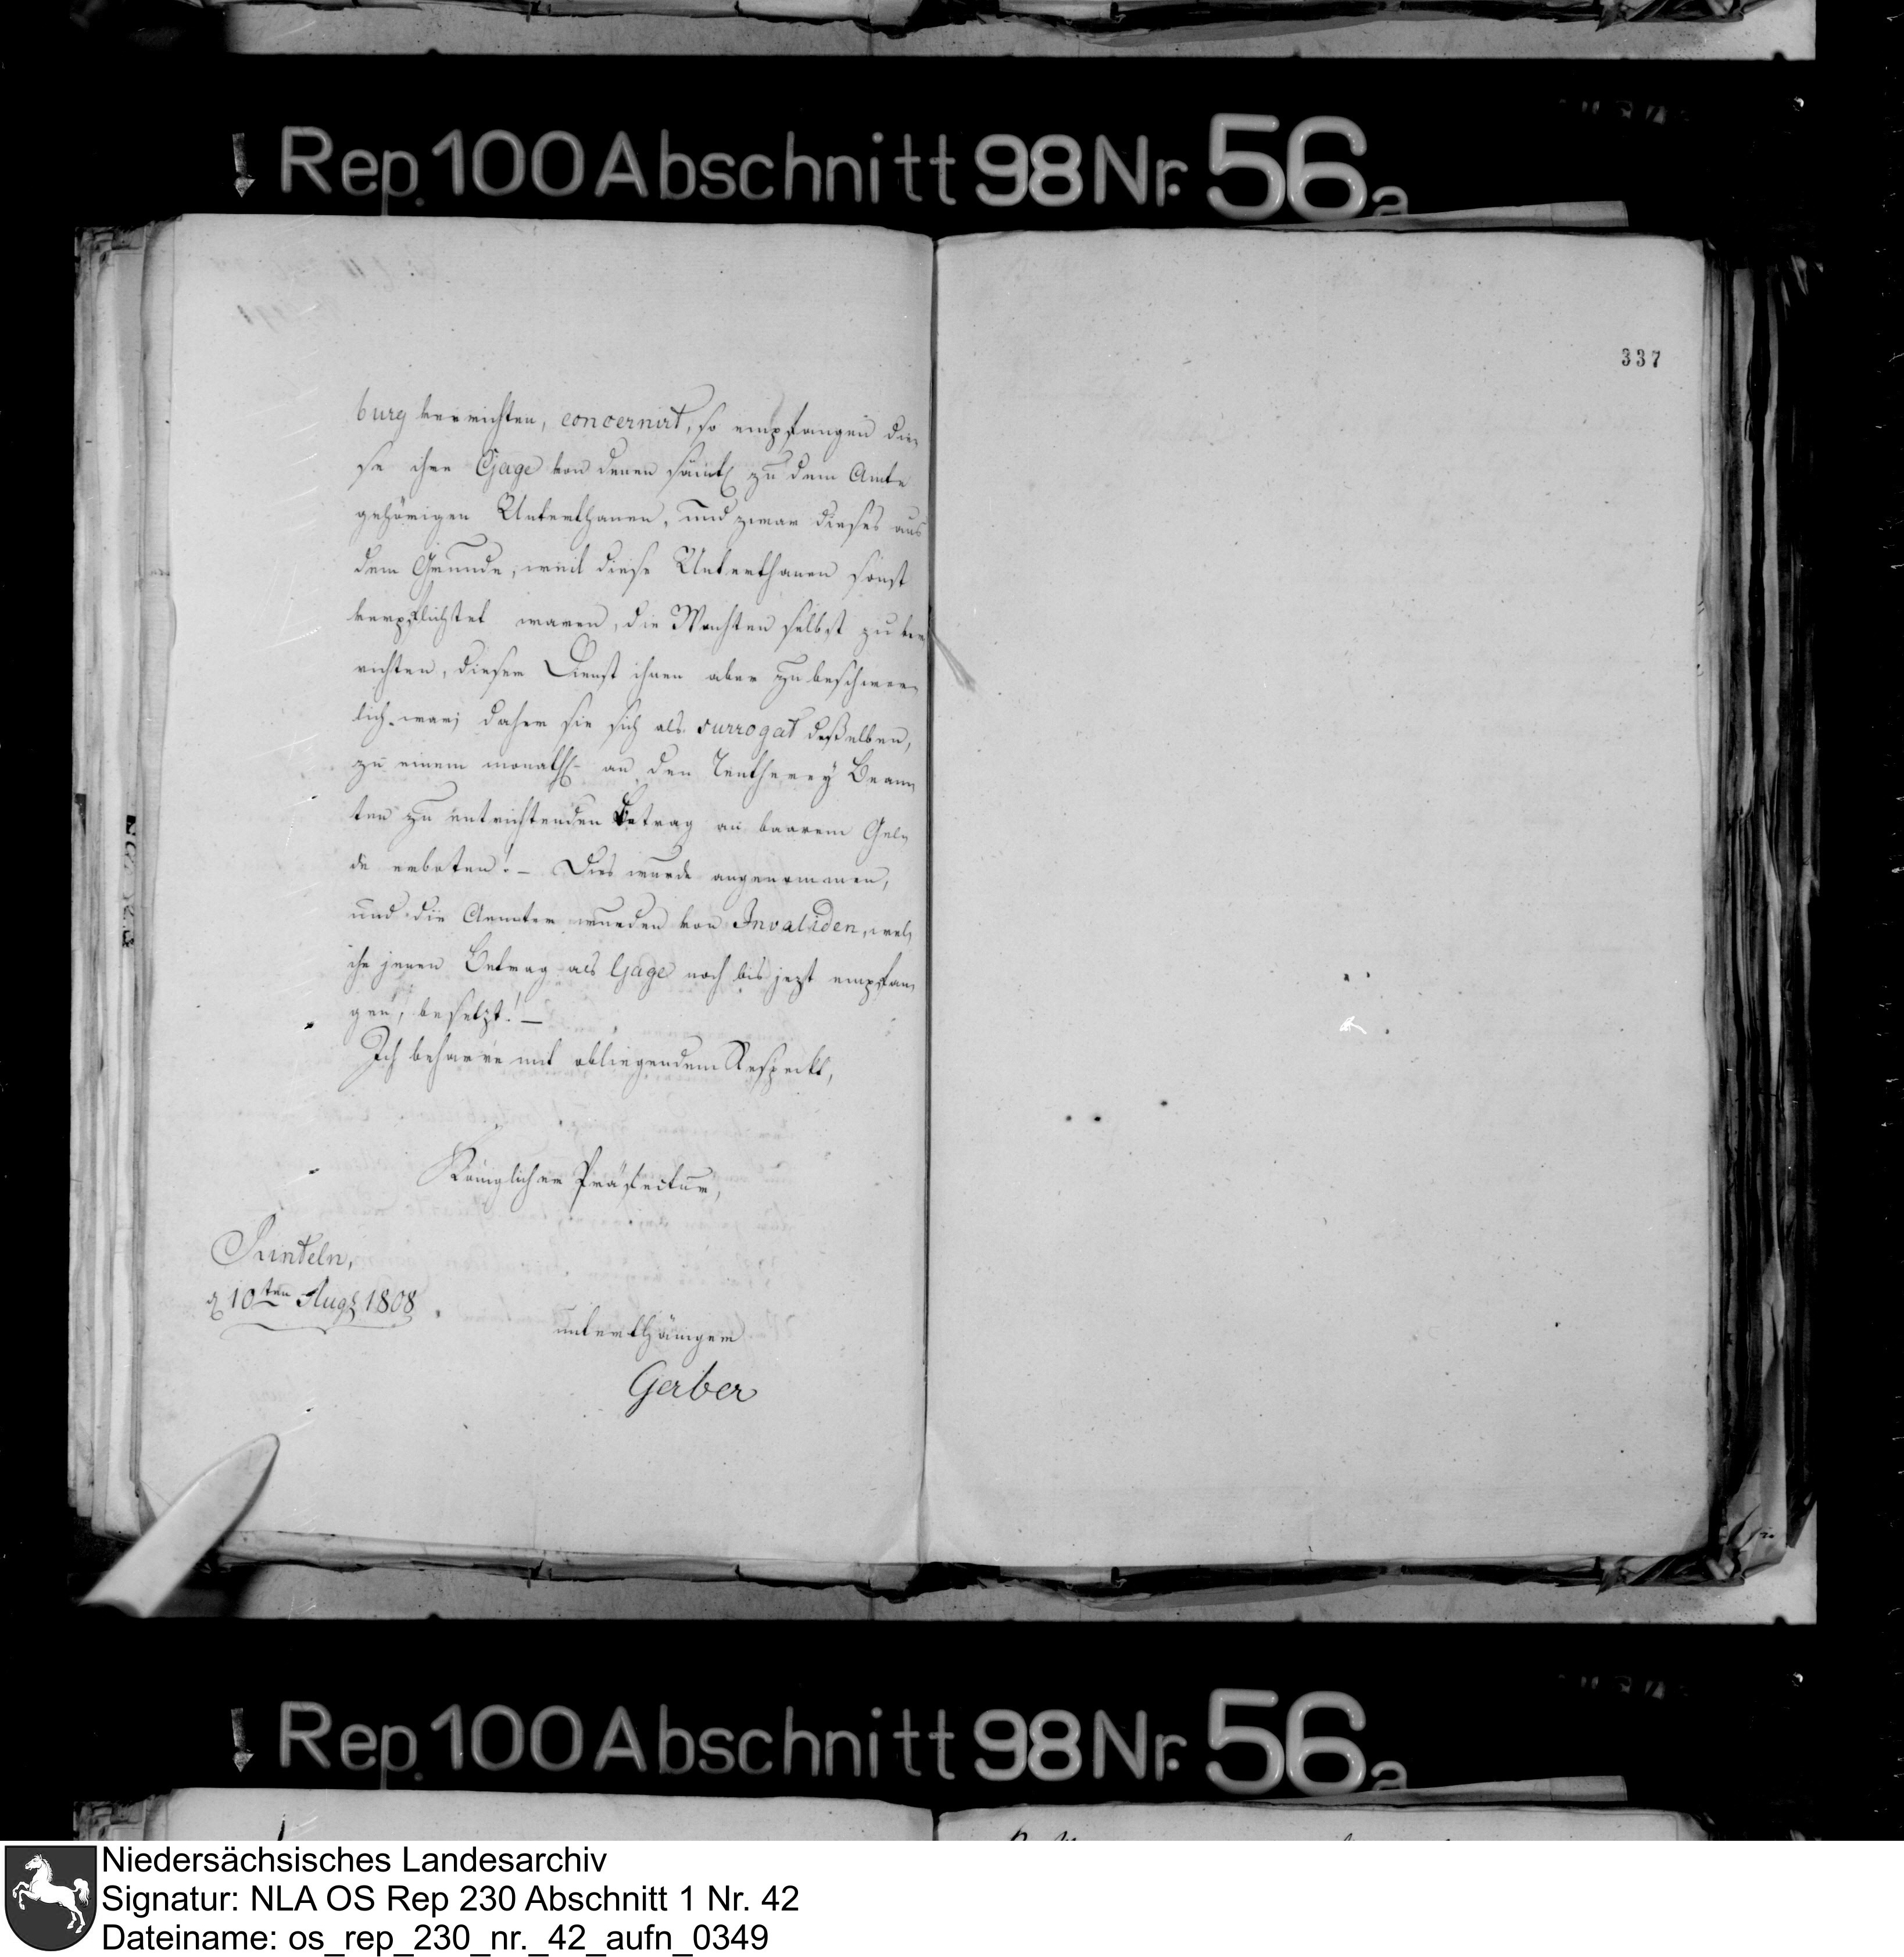 Rep. 100 Abschnitt 98 Nr. 56a
337
burg verrichten, concernirt, so empfangen die-
se ihre Gage von denen sämtl. zu dem Amte
gehörigen Unterthanen, und zwar dieses aus
dem Grunde, weil diese Unterthanen sonst
verpflichtet waren, die Wachten selbst zu ver-
richten, dieser Dienst ihnen aber zu beschwer-
lich war; daher sie sich als surrogat deßelben,
zu einem monatl. an den Rentherey Beam-
ten zu entrichtenden Betrag an baarem Gel-
de erboten! – Dies wurde angenommen,
und die Aemter wurden von Invaliden, wel-
che jenen Betrag als Gage noch bis jezt empfan-
gen, besetzt! –
Ich beharre mit obliegendem Respeckt,
Königlicher Präfectur,
Rinteln,
d 10ten Augs 1808
unterthäniger
Gerber
Rep. 100 Abschnitt 98 Nr. 56a
Niedersächsisches Landesarchiv
Signatur: NLA OS Rep 230 Abschnitt 1 Nr. 42
Dateiname: os_rep_230_nr._42_aufn_0349